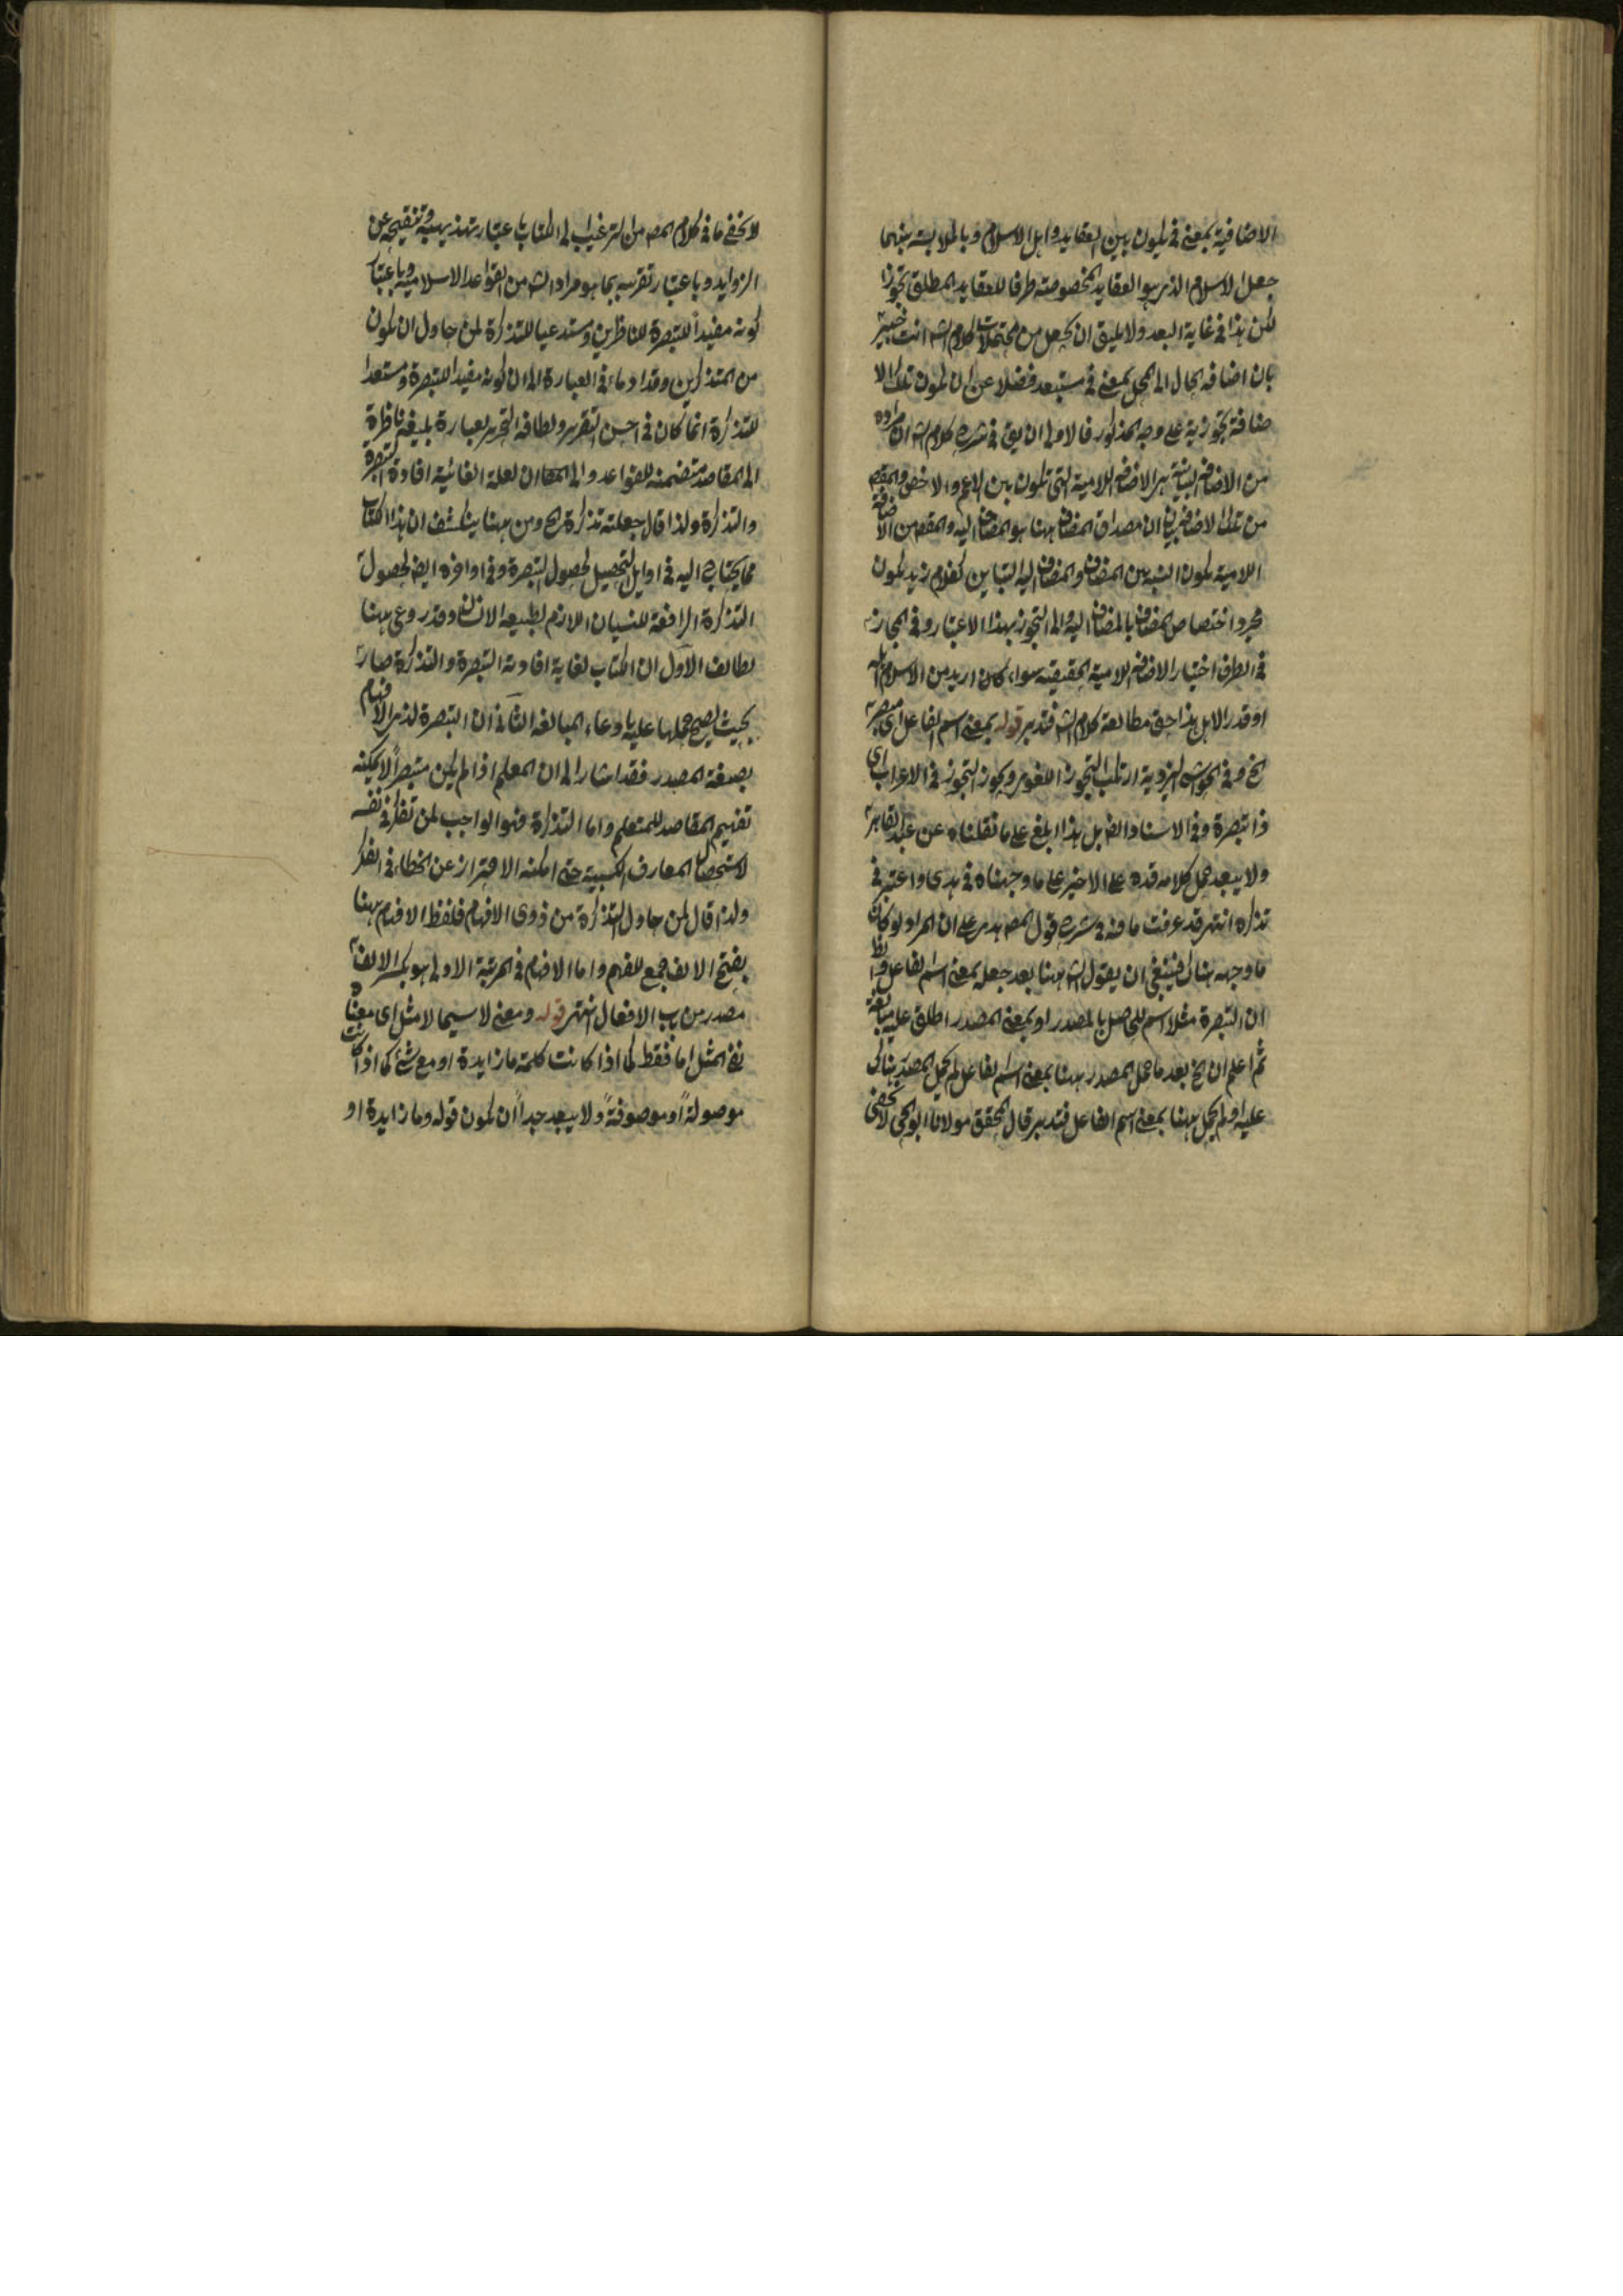 الاضافية بمعنى في ليكون بين العقايد واهل الاسلام وبالملابسة بينهما
جعل الاسلام الذي هو العقايد المخصوصة طرفا للعقايد المطلق تجوزا
لكن هذا في غاية البعد ولا يليق ان يجعل من محتملات كلام الشه انت خبير
بان اضافة الحال الى المحل بمعنى في مستبعد فضلا عن ان يكون تلك الا
ضافة تجوزية على وجه المذكور فالاولى ان يق في شرح كلام الشه ان مراده
من الاضافة البيانية هى الاضافة اللامية التي تكون بين الاعم والاخص والمقصه
من تلك الاضافة بيان ان مصداق المضاف ههنا هو المضاف اليه والمقصه من الاضافة
اللامية لكون النسبة بين المضاف والمضاف اليه التباين كغلام زيد يكون
مجرد اختصاص المضاف بالمضاف اليه والى التجوز بهذا الاعتبار وفي المجاز
في الطرف اختيار الاضافة اللامية الحقيقية سواء كان اريد من الاسلام اهله
او قدر الاهل هذا حق مطالعة كلام الشه فتدبر قوله بمعنى اسم الفاعل اى مبصرة
الخ وفي الحواشى اليزدية ارتكب التجوز اللغوى ويجوز التجوز في الاعراب اى
ذا تبصرة وفي الاسناد ايضا بل هذا ابلغ على ما نقلناه عن عبد القاهر
ولا يبعد حمل كلامه قده على الاخير على ما وجهناه في هدى واعتبر في
تذكره انتهى قد عرفت ما فيه في شرح قول المصه هدى على ان المراد لو كان
ما وجهه هناك فينبغي ان يقول الشه ههنا بعد جعله بمعنى اسم الفاعل
ان التبصرة مثلا اسم للحاصل بالمصدر او بمعنى المصدر اطلق عليه مبالغة
ثم اعلم ان الخ بعد ما حمل المصدر ههنا بمعنى اسم الفاعل لم يحمل المصدر هناك
عليه او لم يحمل ههنا بمعنى اسم الفاعل فتدبر قال المحقق مولانا ابو الحى لا يخفى
لا يخفى ما في كلام المصه من الترغيب الى الكتاب باعتبار تهذيبه وتنقيحه عن
الزوايد وباعتبار تقريبه بما هو مراد الشه من القواعد الاسلامية وباعتبار
كونه مفيداً للتبصرة للناظرين ومستدعيا للتذكرة لمن حاول ان يكون
من المتذكرين وقد ادماء في العبارة الى ان كونه مفيدا للتبصرة ومستعدا
للتذكرة انما كان في احسن التقرير ولطافة التحرير بعبارة بليغة ناظرة
الى المقاصد متضمنة للقواعد والى ان العلة الغائية افادة التبصرة
والتذكرة ولذا قال جعلته تذكرة الخ ومن ههنا ينكشف ان هذا الكتاب
مما يحتاج اليه في اوايل التحصيل لحصول التبصرة وفي اواخره ايضا لحصول
التذكرة الرافعة للنسيان اللازم لطبيعة الانسان وقد روعى ههنا
لطائف الاول ان الكتاب لغاية افادته التبصرة والتذكرة صار
بحيث يصح حملها عليه ادعاء المبالغة الثاني ان التبصرة لذى الافهام
بصيغة المصدر فقد اشار الى ان المعلم اذا لم يكن متبصراً لا يمكنه
تفهيم المقاصد للمتعلم واما التذكرة فهو الواجب لمن تفكر في نفسه
لاستحصال المعارف الكسبية حتى امكنه الاحتراز عن الخطاء في الفكر
ولذا قال لمن حاول التذكرة من ذوى الافهام فلفظ الافهام ههنا
بفتح الالف جمع للفهم واما الافهام في المرتبة الاولى هو بكسر الالف
مصدر من باب الافعال انتهى قوله ومعنى لاسيما لا مثل اى معناه
نفى المثل اما فقط كما اذا كانت كلمة ما زايدة او مع شئ كما اذا كانت
موصولةً او موصوفةً ولا يبعد جداً ان يكون قوله وما زايدة او